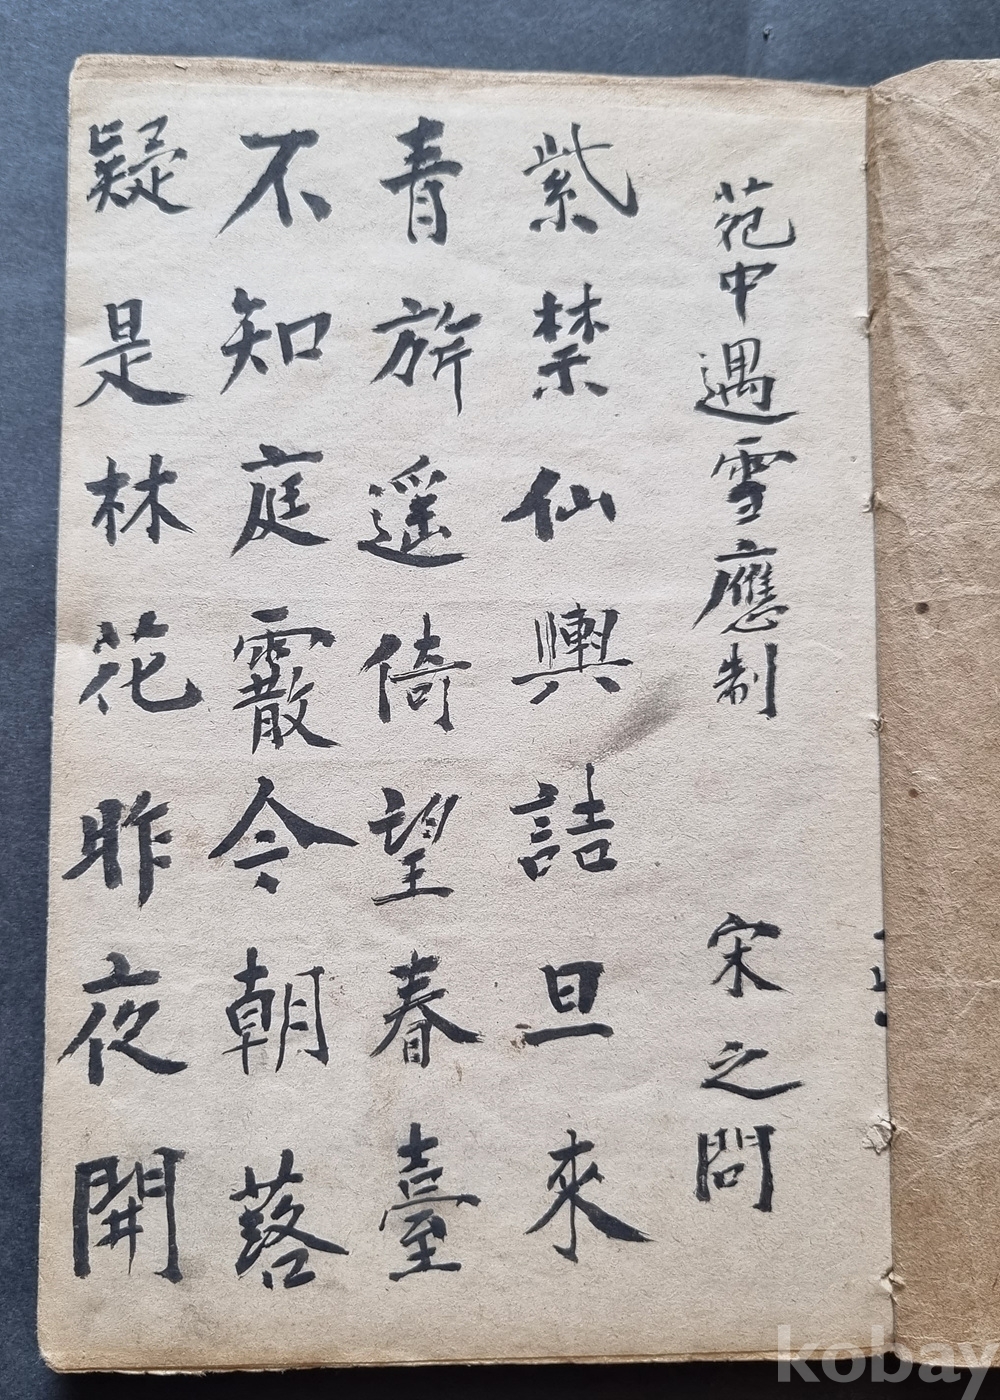 苑中遇雪應制 宋之問
紫禁仙輿詰旦來
青旂遥倚望春臺
不知庭霰今朝落
疑是林花昨夜開
kobay